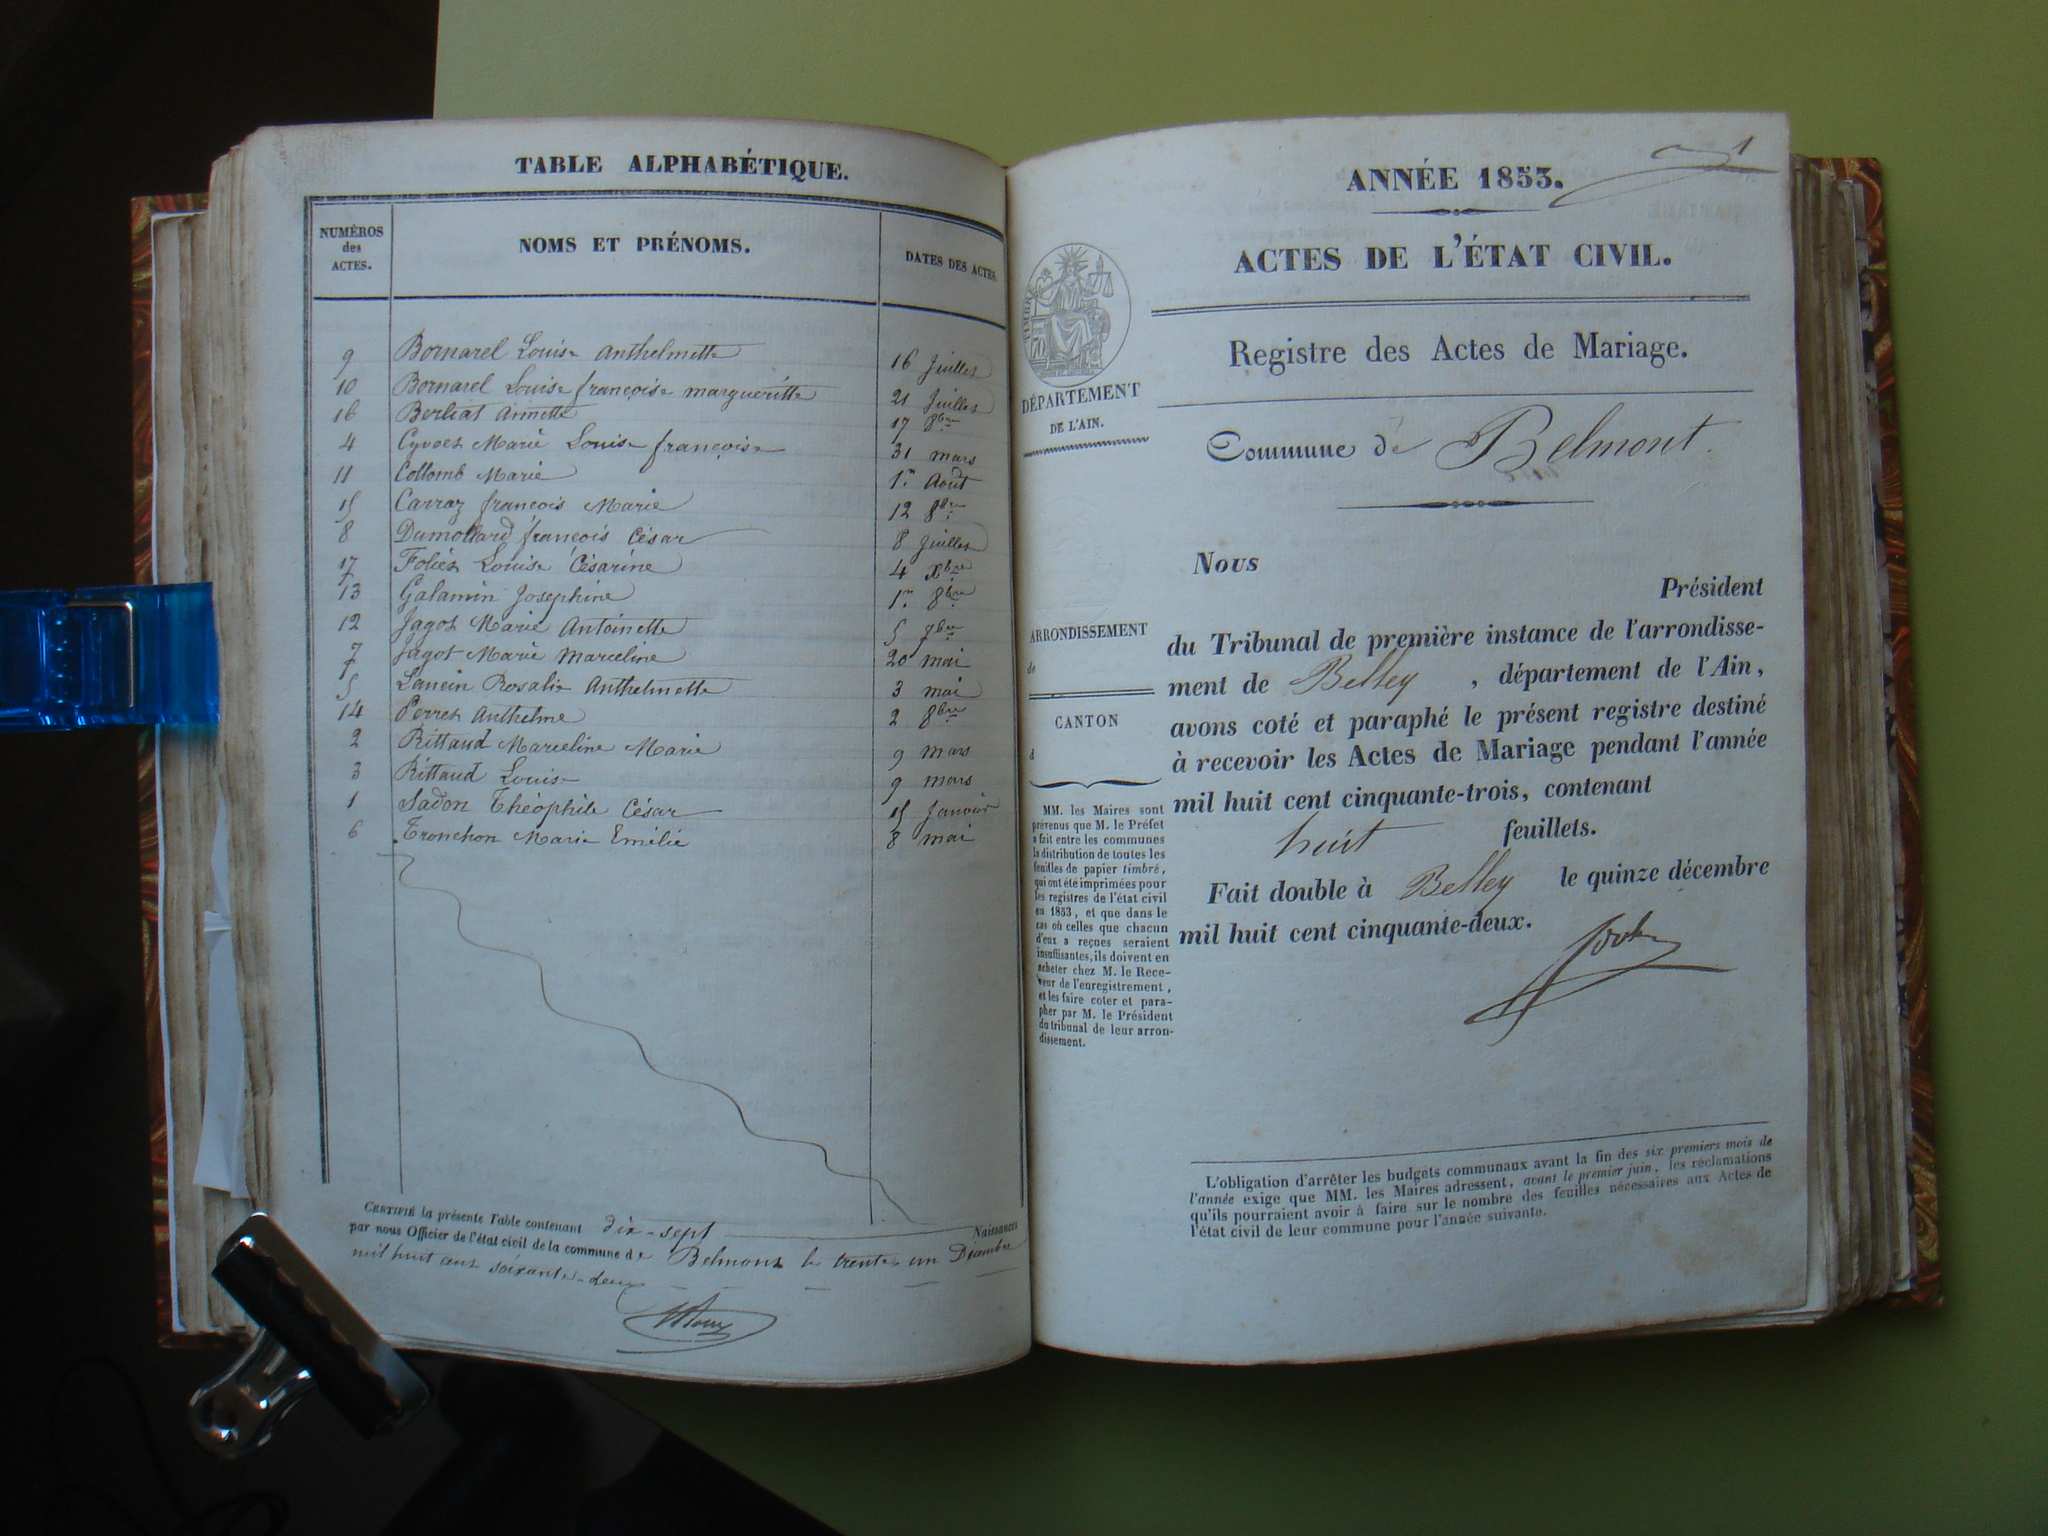 TABLE ALPHABÉTIQUE.
NUMÉROS des ACTES. NOMS ET PRÉNOMS. DATES DES ACTES.
9 Bornarel Louise Anthelmette 16 Juillet
10 Bornarel Louise françoise margueritte 21 Juillet
16 Berliat Annette 17 8bre
4 Cyvoct Marie Louise françoise 31 mars
11 Collomb Marie 1er Août
15 Carraz françois Marie 12 8bre
8 Dumollard françois César 8 Juillet
17 Foliet Louise Césarine 4 Xbre
13 Galamin Josephine 1er 8bre
12 Jagot Marie Antoinette 5 7bre
7 Jagot Marie Marceline 20 mai
5 Lancin Rosalie Anthelmette 3 mai
14 Perret Anthelme 2 8bre
2 Rittaud Marceline Marie 9 mars
3 Rittaud Louise 9 mars
1 Sadon Théophile César 15 Janvier
6 Tronchon Marie Emélie 8 mai
CERTIFIÉ la présente Table contenant dix-sept Naissances
par nous Officier de l'état civil de la commune de Belmont le trente un Décembre
mil huit
1
ANNÉE 1853.
ACTES DE L'ÉTAT CIVIL.
TIMBRE
Registre des Actes de Mariage.
DÉPARTEMENT
DE L'AIN.
Commune de Belmont.
Nous
Président
ARRONDISSEMENT
de
CANTON
d
du Tribunal de première instance de l'arrondisse-
ment de Belley, département de l'Ain,
avons coté et paraphé le présent registre destiné
à recevoir les Actes de Mariage pendant l'année
mil huit cent cinquante-trois, contenant
huit feuillets.
Fait double à Belley le quinze décembre
mil huit cent cinquante-deux.
MM. les Maires sont
prévenus que M. le Préfet
a fait entre les communes
la distribution de toutes les
feuilles de papier timbré,
qui ont été imprimées pour
les registres de l'état civil
en 1853, et que dans le
cas où celles que chacun
d'eux a reçues seraient
insuffisantes, ils doivent en
acheter chez M. le Rece-
veur de l'enregistrement,
et les faire coter et para-
pher par M. le Président
du tribunal de leur arron-
dissement.
L'obligation d'arrêter les budgets communaux avant la fin des six premiers mois de
l'année exige que MM. les Maires adressent, avant le premier juin, les réclamations
qu'ils pourraient avoir à faire sur le nombre des feuilles nécessaires aux Actes de
l'état civil de leur commune pour l'année suivante.